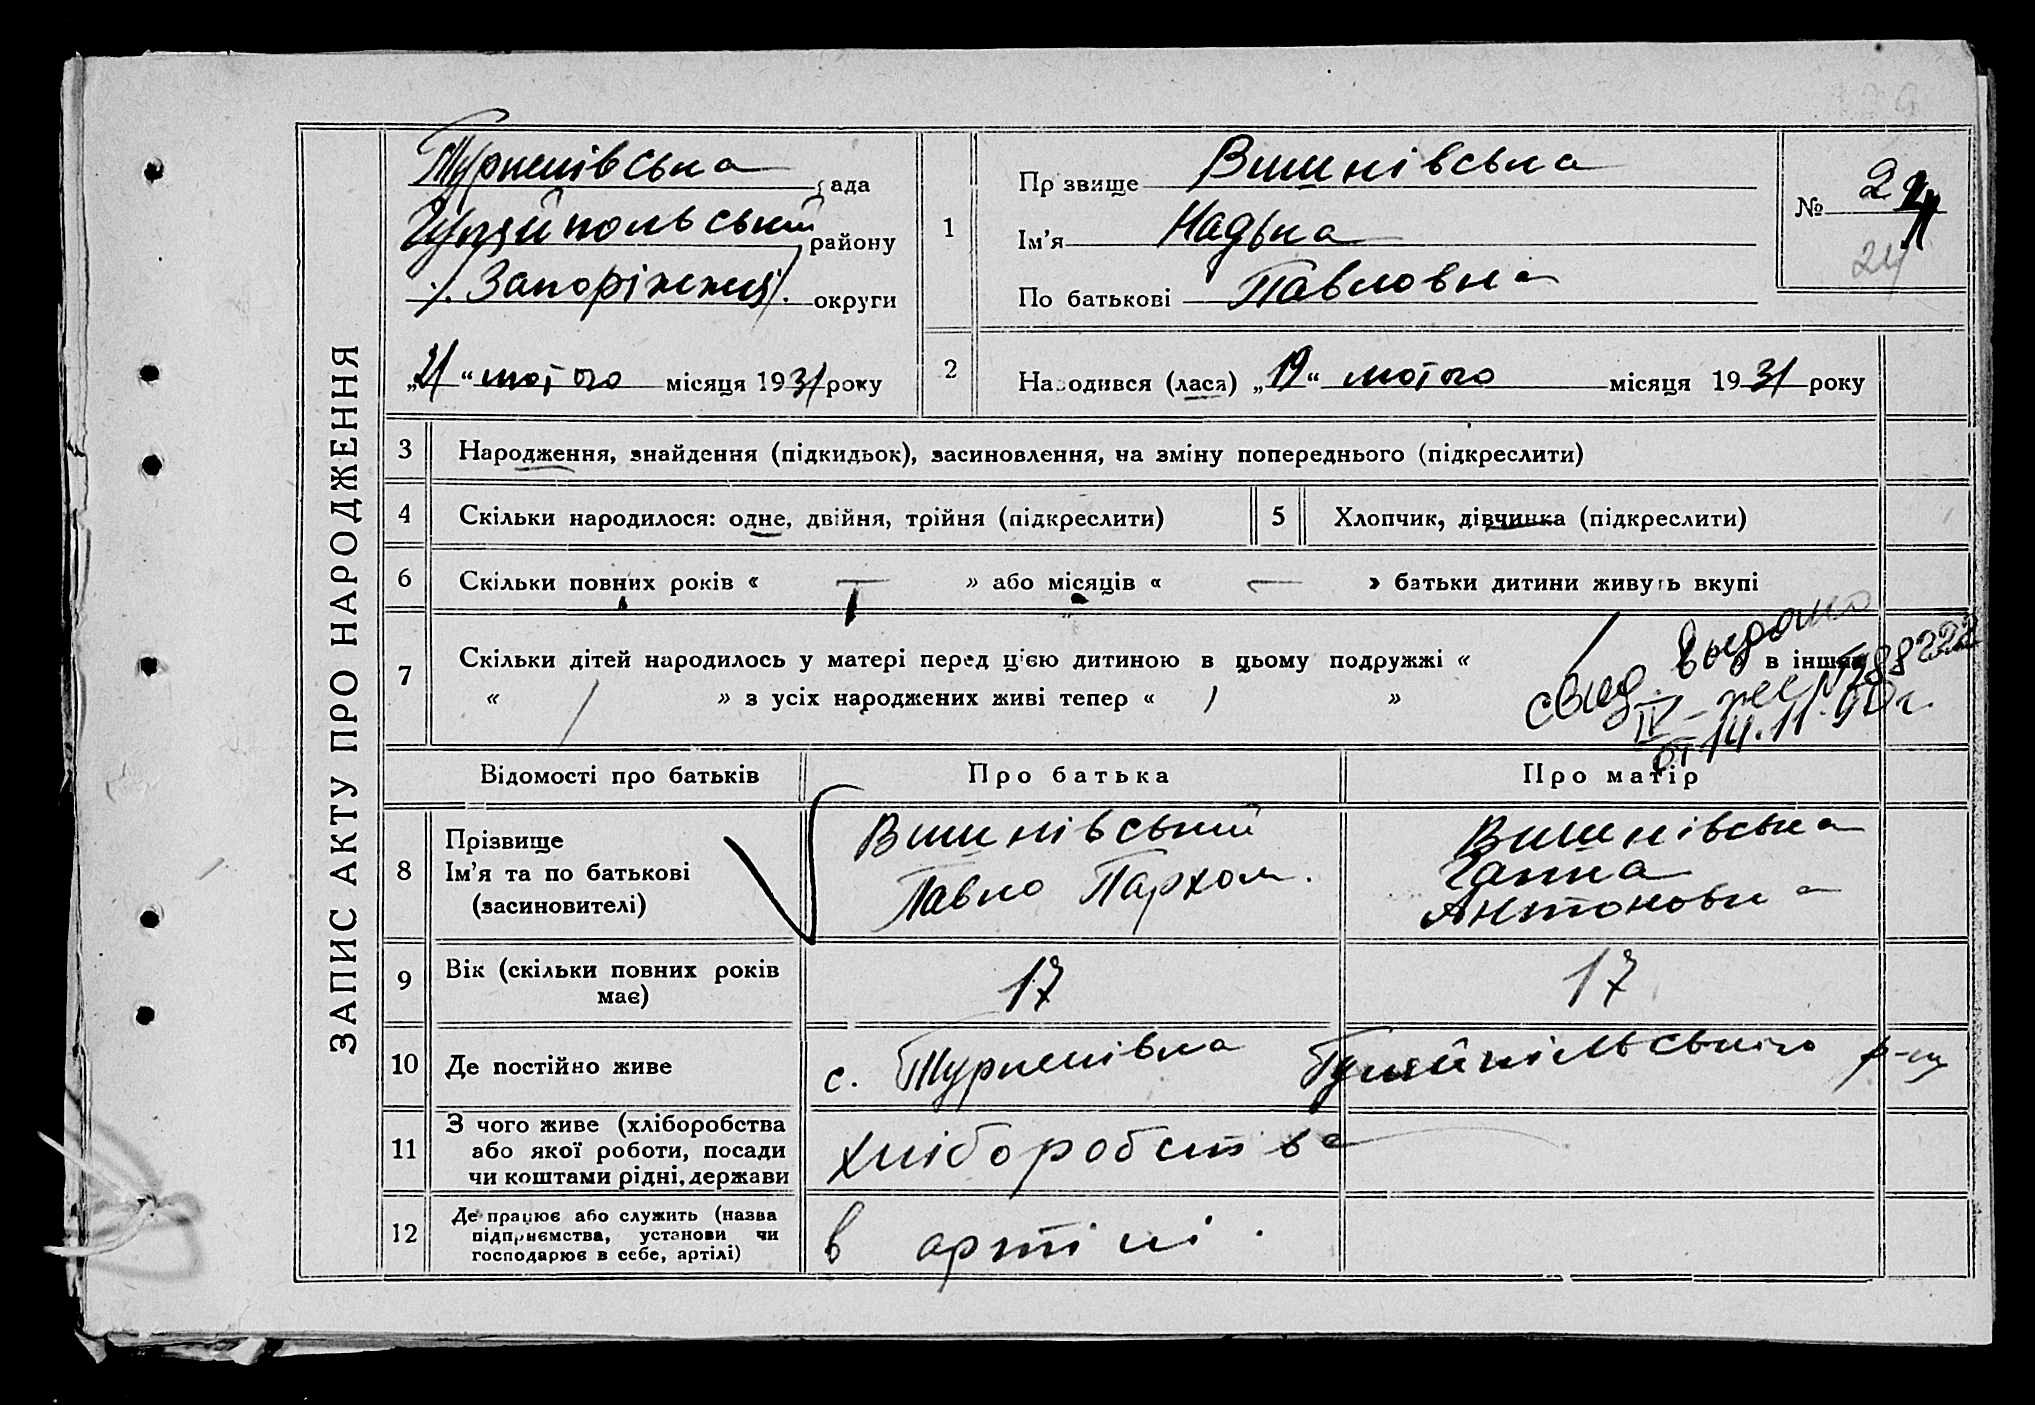 ЗАПИС АКТУ ПРО НАРОДЖЕННЯ
Туркенівська рада
Гуляйпольський району
/. Запоріжжя/. округи
„21“ лютого місяця 1931 року
1
Прізвище Вишнівська
Ім'я Надька
По батькові Павловна
№ 24
24
2
Народився (лася) „19“ лютого місяця 1931 року
3 Народження, знайдення (підкидьок), засиновлення, на зміну попереднього (підкреслити)
4 Скільки народилося: одне, двійня, трійня (підкреслити)
5 Хлопчик, дівчинка (підкреслити)
6 Скільки повних років « — » або місяців « — » батьки дитини живуть вкупі
7 Скільки дітей народилось у матері перед цією дитиною в цьому подружжі « / в інших
« / » з усіх народжених живі тепер « / »
свид. выдано
IV-жс № 288222
от 14.11.90 г.
Відомості про батьків
Про батька
Про матір
8 Прізвище
Ім'я та по батькові
(засиновителі)
Вишнівський
Павло Пархом.
Вишнівська
Ганна
Антоновна
9 Вік (скільки повних років
має)
17
17
10 Де постійно живе
с. Туркенівка Гуляйпільського р-ну
11 З чого живе (хліборобства
або якої роботи, посади
чи коштами рідні, держави
хліборобства
12 Де працює або служить (назва
підприємства, установи чи
господарює в себе, артілі)
в артілі.